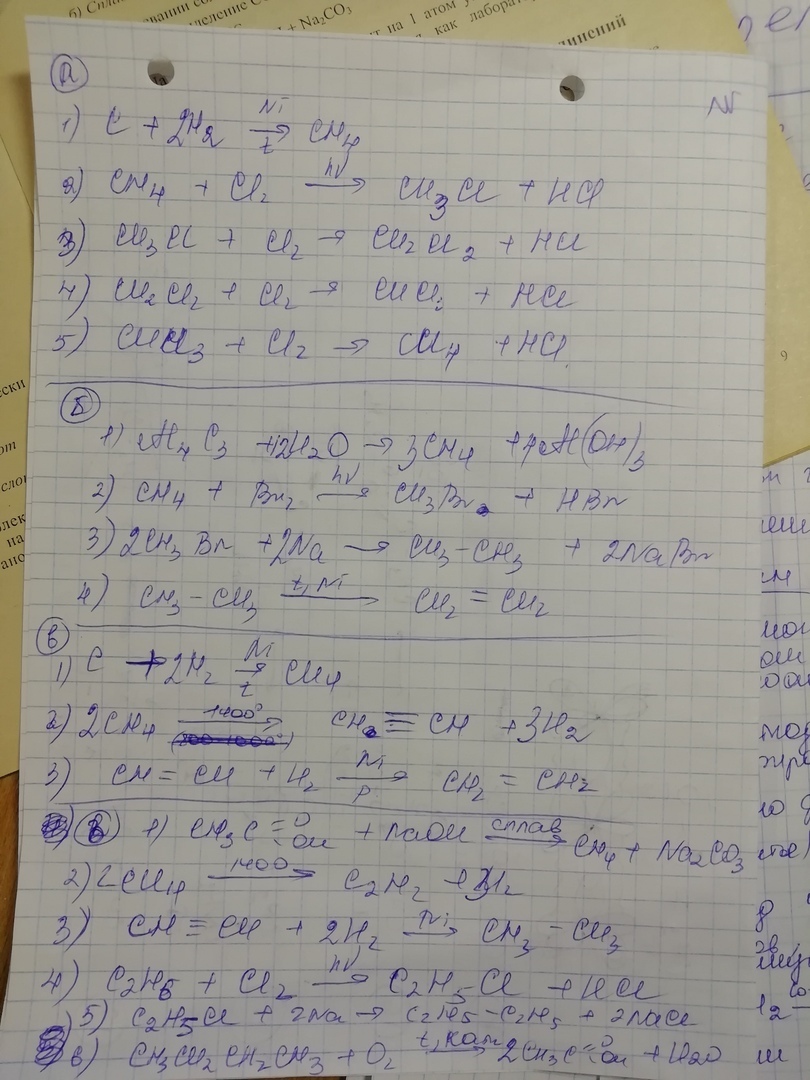 б) Спла
Na₂CO₃
на 1 атом
как
динений
а)
1) C + 2H₂ →(Ni, t) CH₄
2) CH₄ + Cl₂ →(hν) CH₃Cl + HCl
3) CH₃Cl + Cl₂ → CH₂Cl₂ + HCl
4) CH₂Cl₂ + Cl₂ → CHCl₃ + HCl
5) CHCl₃ + Cl₂ → CCl₄ + HCl
9
б)
1) Al₄C₃ + 12H₂O → 3CH₄ + 4Al(OH)₃
2) CH₄ + Br₂ →(hν) CH₃Br + HBr
3) 2CH₃Br + 2Na → CH₃–CH₃ + 2NaBr
4) CH₃–CH₃ →(t, Ni) CH₂=CH₂
в)
1) C + 2H₂ →(Ni, t) CH₄
2) 2CH₄ →(1400°) CH≡CH + 3H₂
3) CH≡CH + H₂ →(Ni, p) CH₂=CH₂
1) CH₃C=O–OH + NaOH →(сплав) CH₄ + Na₂CO₃
2) 2CH₄ →(1400) C₂H₂ + 3H₂
3) CH≡CH + 2H₂ →(Ni) CH₃–CH₃
4) C₂H₆ + Cl₂ →(hν) C₂H₅–Cl + HCl
5) C₂H₅–Cl + 2Na → C₂H₅–C₂H₅ + 2NaCl
6) CH₃CH₂CH₂CH₃ + O₂ →(t, кат) 2CH₃C=O–OH + H₂O